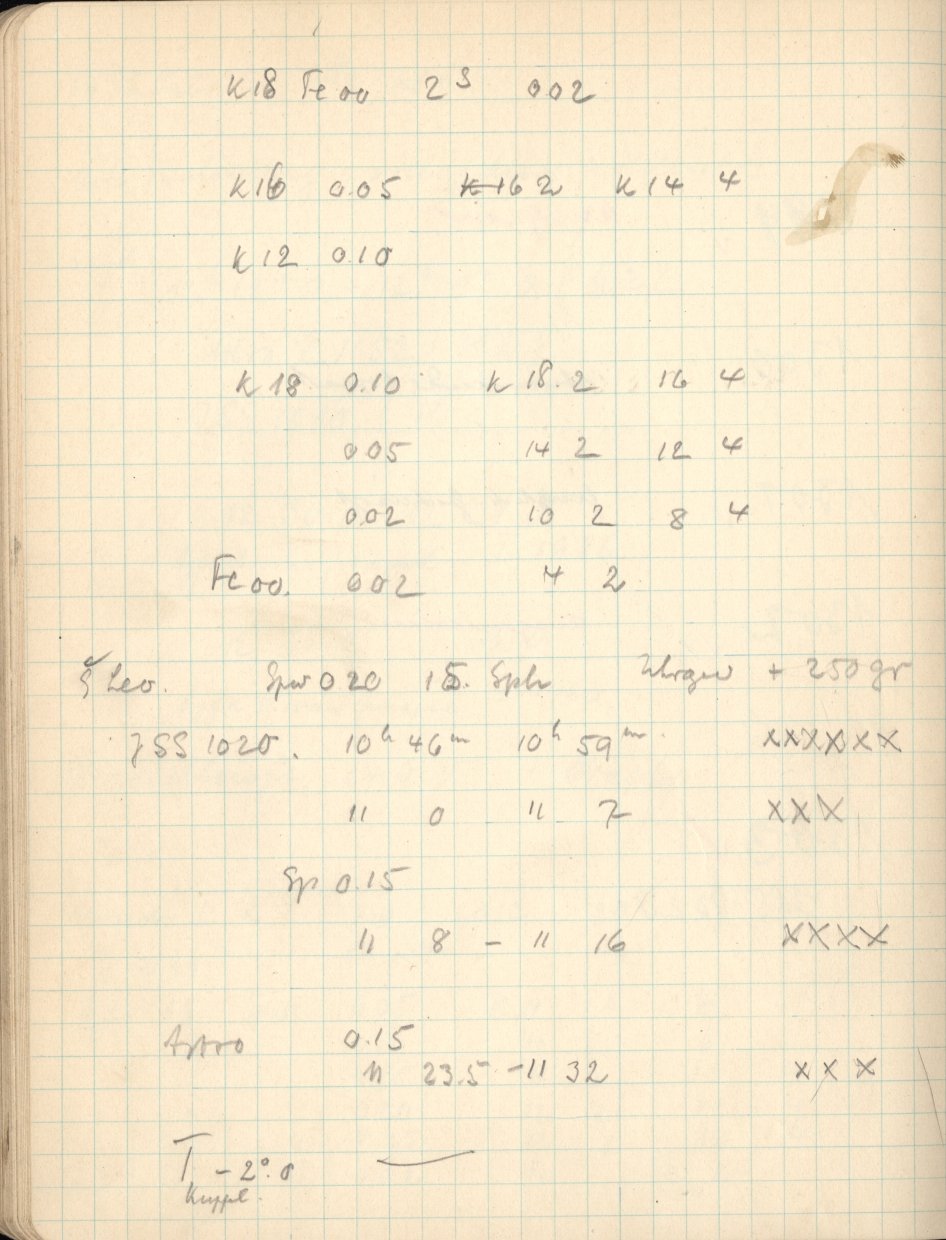 K18 Fe 00 2 S 0 02
K16 0.05 K 16 2 K 14 4
K 12 0.10
K 18 0.10 K 18. 2 16 4
0 05 14 2 12 4
0.02 10 2 8 4
Fe 00. 0 02 4 2
ξ Leo. 0 20 15. Sph + 250 gr
JSS 1020. 10h 46m 10h 59m. xxxxxx
11 0 11 7 xxx
Sp 0.15
11 8 – 11 16 xxxx
Astro 0.15
11 23.5 – 11 32 x x x
T – 2°.0
Kuppel.